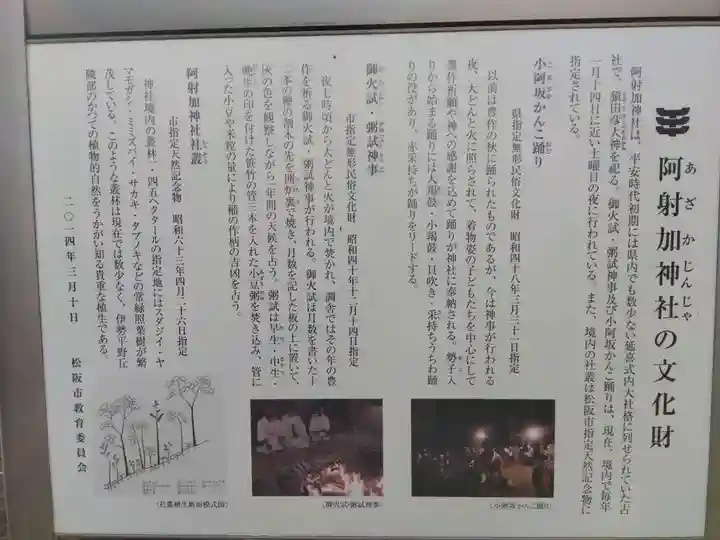 あざかじんじゃ
阿射加神社の文化財
阿射加神社は、平安時代初期には県内でも数少ない延喜式内大社格に列せられていた古
社で、猿田彦大神を祀る。御火試・粥試神事及び小阿坂かんこ踊りは、現在、境内で毎年
一月十四日に近い土曜日の夜に行われている。また、境内の社叢は松阪市指定天然記念物に
指定されている。
小阿坂かんこ踊り
県指定無形民俗文化財 昭和四十八年三月三十一日指定
以前は豊作の秋に踊られたものであるが、今は神事が行われる
夜、大どんと火に照らされて、着物姿の子どもたちを中心にして
豊作祈願や神への感謝を込めて踊りが神社に奉納される。勢子入
りから始まる踊りには大鞨鼓・小鞨鼓・貝吹き・采持ちうちわ踊
りの役があり、赤采持ちが踊りをリードする。
御火試・粥試神事
市指定無形民俗文化財 昭和四十年十二月十四日指定
夜七時頃から大どんと火が境内で焚かれ、調舎ではその年の豊
作を祈る御火試・粥試神事が行われる。御火試は月数を書いた十
二本の樫の割木の先を囲炉裏で焼き、月数を記した板の上に置いて、
灰の色を観察しながら一年間の天候を占う。粥試は早生・中生・
晩生の印を付けた笹竹の管三本を入れた小豆粥を焚き込み、管に
入った小豆や米粒の量により稲の作柄の吉凶を占う。
阿射加神社社叢
市指定天然記念物 昭和六十三年四月二十六日指定
神社境内の叢林一・四五ヘクタールの指定地にはスダジイ・ヤ
マモガシ・ミミズバイ・サカキ・タブノキなどの常緑照葉樹が繁
茂している。このような叢林は現在では数少なく、伊勢平野丘
陵部のかつての植物的自然をうかがい知る貴重な植生である。
二〇一四年三月十日
松阪市教育委員会
(小阿坂かんこ踊り)
(御火試・粥試神事)
(社叢植生断面模式図)